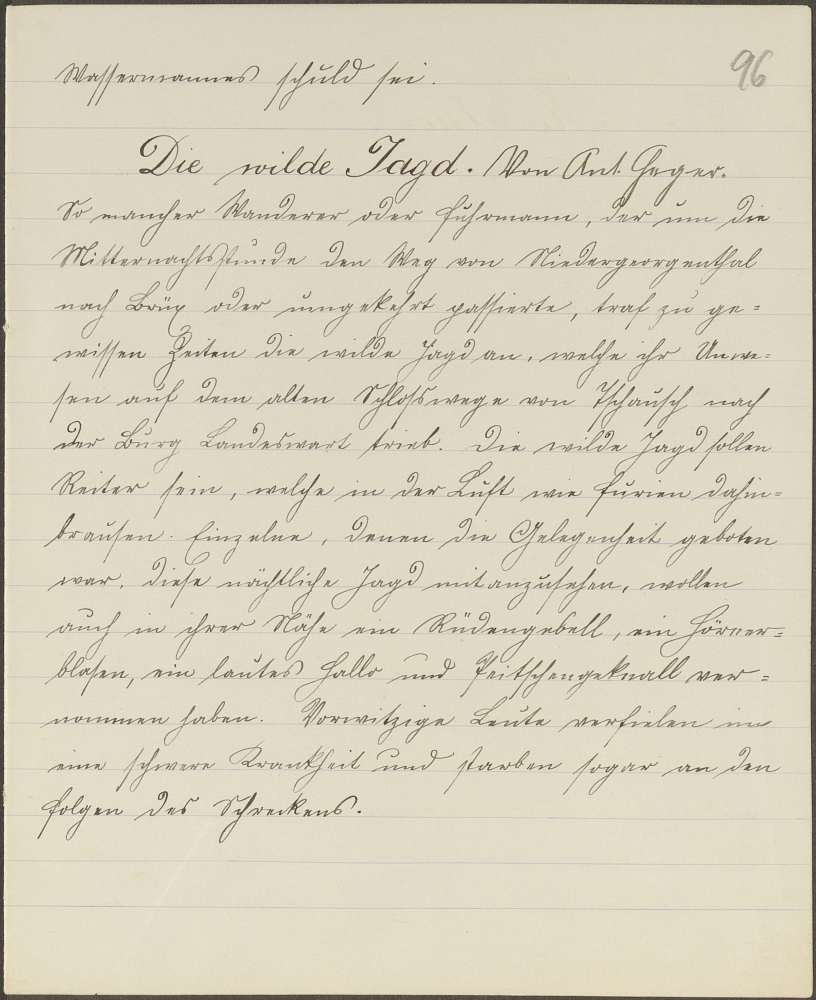 96
Wassermannes schuld sei.
Die wilde Jagd. Von Ant.
So mancher Wanderer oder Fuhrmann, der um die
Mitternachtsstunde den Weg von Niedergeorgenthal
nach Brüx oder umgekehrt passierte, traf zu ge=
wissen Zeiten die wilde Jagd an, welche ihr Unwe=
sen auf dem alten Schlosswege von Tschausch nach
der Burg Landeswart trieb. Die wilde Jagd sollen
Reiter sein, welche in der Luft wie Furien dahin=
brausen. Einzelne, denen die Gelegenheit geboten
war, diese nächtliche Jagd mitanzusehen, wollen
auch in ihrer Nähe ein Rüdengebell, ein Hörner=
blasen, ein lautes Hallo und Peitschengeknall ver=
nommen haben. Vorwitzige Leute verfielen in
eine schwere Krankheit und starben sogar an den
Folgen des Schreckens.